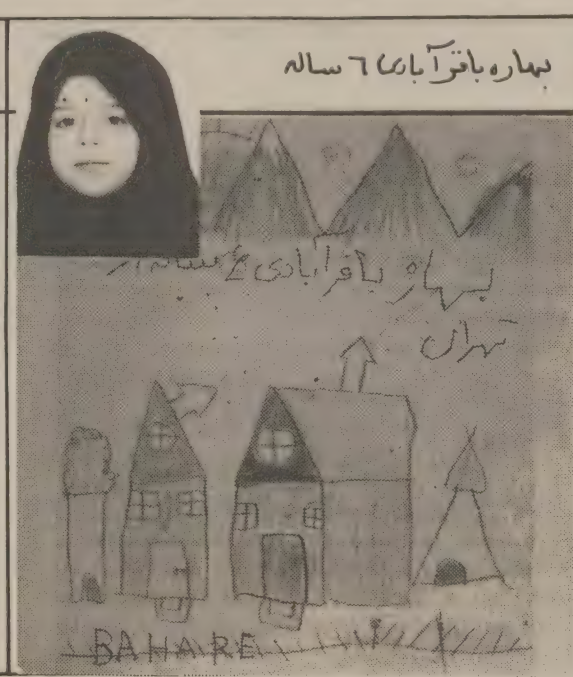 بهاره باقرآبادی ٦ ساله
بهاره باقرآبادی ٤ ساله از
تهران
BAHARE